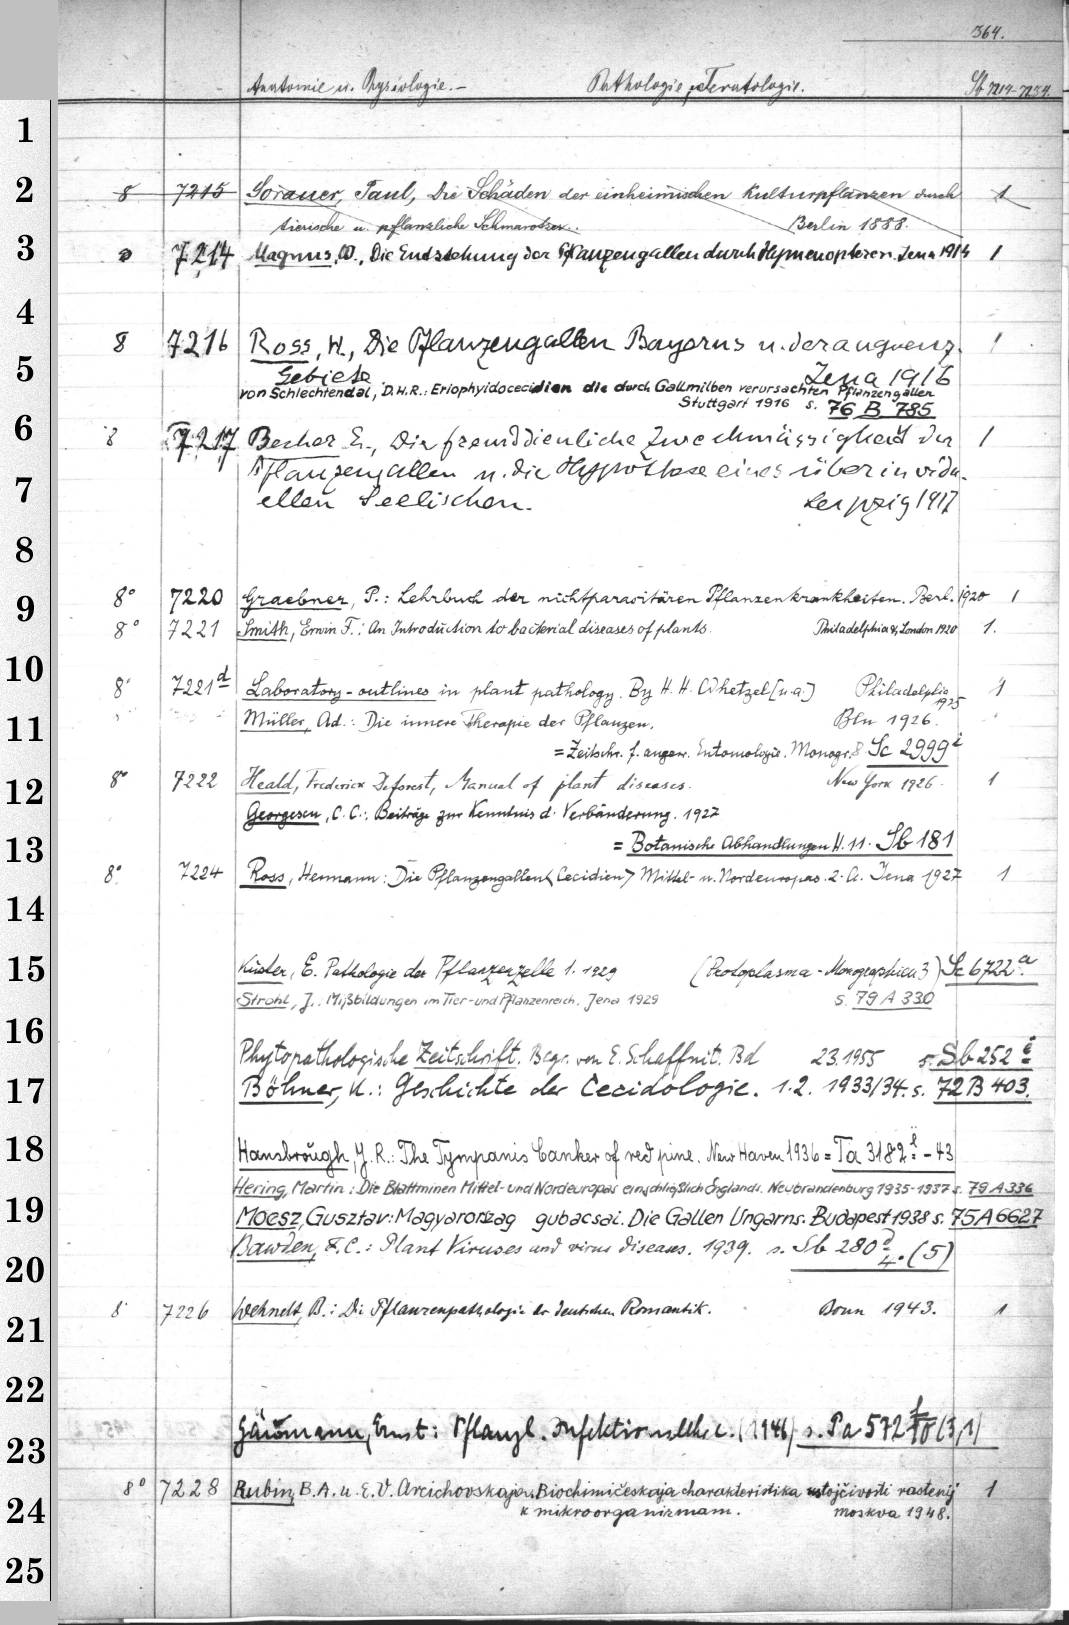 364.
Anatomie u. Physiologie.— Pathologie, Teratologie. Sb 7214-7234.
1
2
8 7215 Sorauer, Paul, Die Schäden der einheimischen Kulturpflanzen durch 1
tierische u. pflanzliche Schmarotzer. Berlin 1888.
3
8 7214 Magnus, W., Die Entstehung der Pflanzengallen durch Hymenopteren. Jena 1914 1
4
8 7216 Ross, H., Die Pflanzengallen Bayerns u. der angrenz. 1
5
Gebiete Jena 1916
von Schlechtendal, D.H.R.: Eriophyidocecidien die durch Gallmilben verursachten Pflanzengallen
Stuttgart 1916 s. 76 B 785
6
8 7217 Becher E., Die fremddienliche Zweckmässigkeit der 1
Pflanzengallen u. die Hypothese eines überindividu-
7
ellen Seelischen. Leipzig 1917
8
9
8° 7220 Graebner, P.: Lehrbuch der nichtparasitären Pflanzenkrankheiten. Berl. 1920 1
8° 7221 Smith, Erwin F.: An Introduction to bacterial diseases of plants. Philadelphia &, London 1920 1.
10
8° 7221 d Laboratory-outlines in plant pathology. By H. H. Whetzel [u.a.] Philadelphia 1925 1
11
Müller, Ad.: Die innere Therapie der Pflanzen. Bln 1926.
= Zeitschr. f. angew. Entomologie. Monogr. 8 Sc 2999 i
12
8° 7222 Heald, Frederick Deforest, Manual of plant diseases. New York 1926. 1
Georgescu, C.C.: Beiträge zur Kenntnis d. Verbänderung. 1927
13
= Botanische Abhandlungen H. 11. Sb 181
8° 7224 Ross, Hermann: Die Pflanzengallen (Cecidien) Mittel- u. Nordeuropas. 2. A. Jena 1927 1
14
15
Küster, E. Pathologie der Pflanzenzelle 1. 1929 (Protoplasma-Monographien 3) Sc 6722 a
Strohl, J.. Mißbildungen im Tier- und Pflanzenreich. Jena 1929 s. 79 A 330
16
Phytopathologische Zeitschrift. Begr. von E. Schaffnit. Bd 23.1955 s. Sb 252 i
17
Böhner, K.: Geschichte der Cecidologie. 1.2. 1933/34. s. 72 B 403.
18
Hansbrough, J. R.: The Tympanis Canker of red pine. New Haven 1936 = Ta 3182 l - 43
Hering, Martin: Die Blattminen Mittel- und Nordeuropas einschließlich Englands. Neubrandenburg 1935-1937 s. 79 A 336
19
Moesz, Gusztav: Magyarorszag gubacsai. Die Gallen Ungarns. Budapest 1938 s. 75 A 6627
Bawden, F. C.: Plant Viruses and virus diseases. 1939. s. Sb 280 d 4. (5)
20
21
8° 7226 Wehnelt, B.: Die Pflanzenpathologie der deutschen Romantik. Bonn 1943. 1
22
23
Gäumann, Ernst: Pflanzl. Infektionslehre. (1946) s. Pa 572 (3,1)
24
8° 7228 Rubin, B. A. u. E. V. Arcichovskaja, Biochimičeskaja charakteristika ustojčivosti rastenij 1
k mikroorganizmam. Moskva 1948.
25